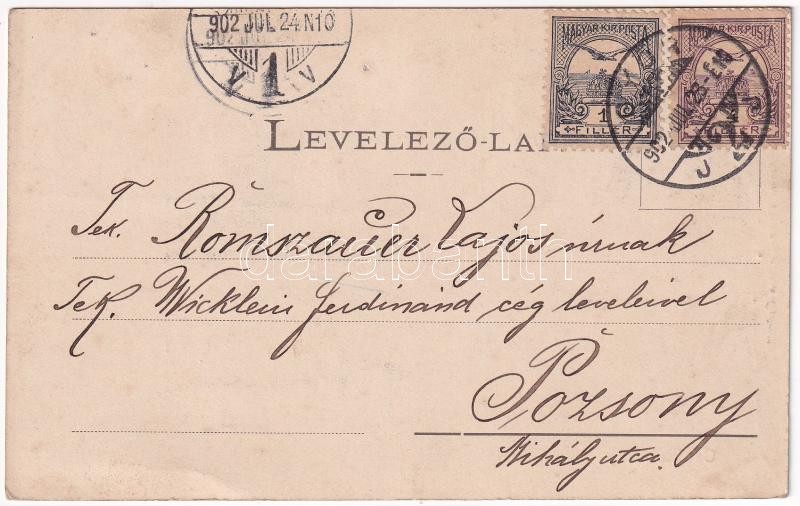 902 JUL. 24 N10
1
MAGYAR KIR. POSTA
1
FILLÉR
MAGYAR KIR. POSTA
FILLÉR
902 JUL. 23
LEVELEZŐ-LA
Tek. Römszauer Lajos úrnak
Tek. Wicklein Ferdinánd cég leveleivel
Pozsony
Mihályutca.
darabanth